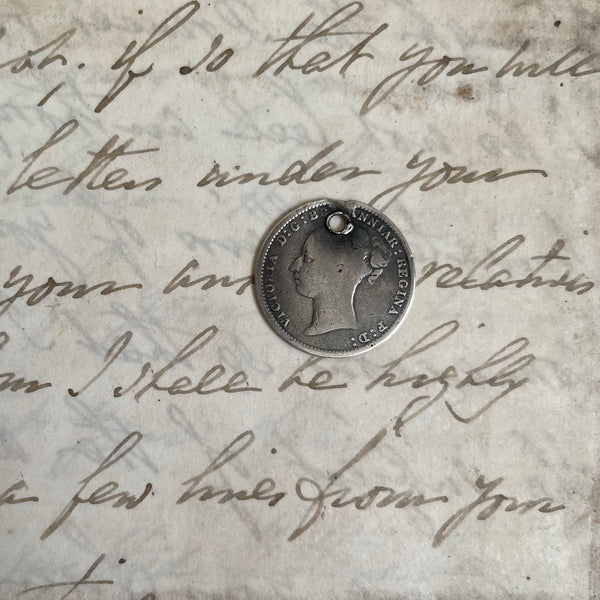 if so that you will
letters under your
VICTORIA D:G:B NNIAR: REGINA F:D:
your an relatives
I shall be highly
a few lines from your